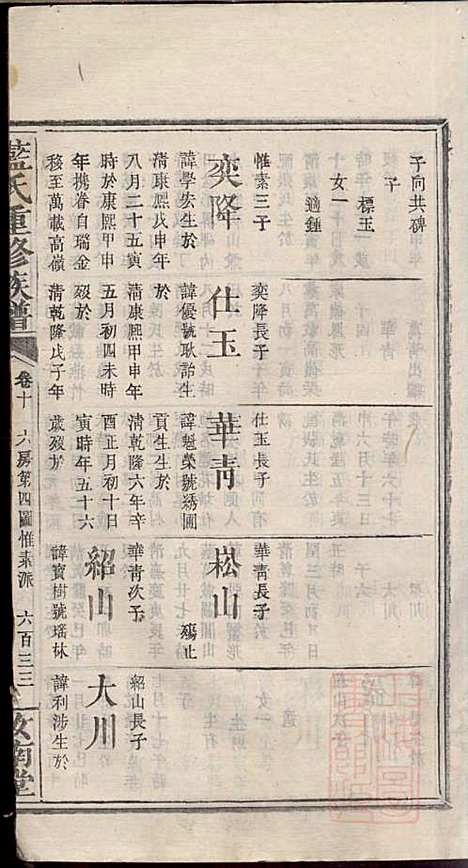 子向共碑
子
標玉
女一
適鍾
惟素三子
奕降
諱學宏生於
清康熙庚申年
八月二十五寅
時於康熙甲申
年携眷自瑞金
移至萬載高嶺
奕降長子
仕玉
諱優號耿詒生
於
清康熙甲申年
五月初四未時
歿於
清乾隆戊子年
仕玉長子
華青
諱魁榮號綉圃
貢生生於
清乾隆六年辛
酉正月初十日
寅時年五十六
歲歿於
華青長子
崧山
殤止
華青次子
紹山
諱寶樹號瑤林
紹山長子
大川
諱利涉生於
藍氏重修族譜
卷十
六房第四圖惟素派
六百三三
汝南堂